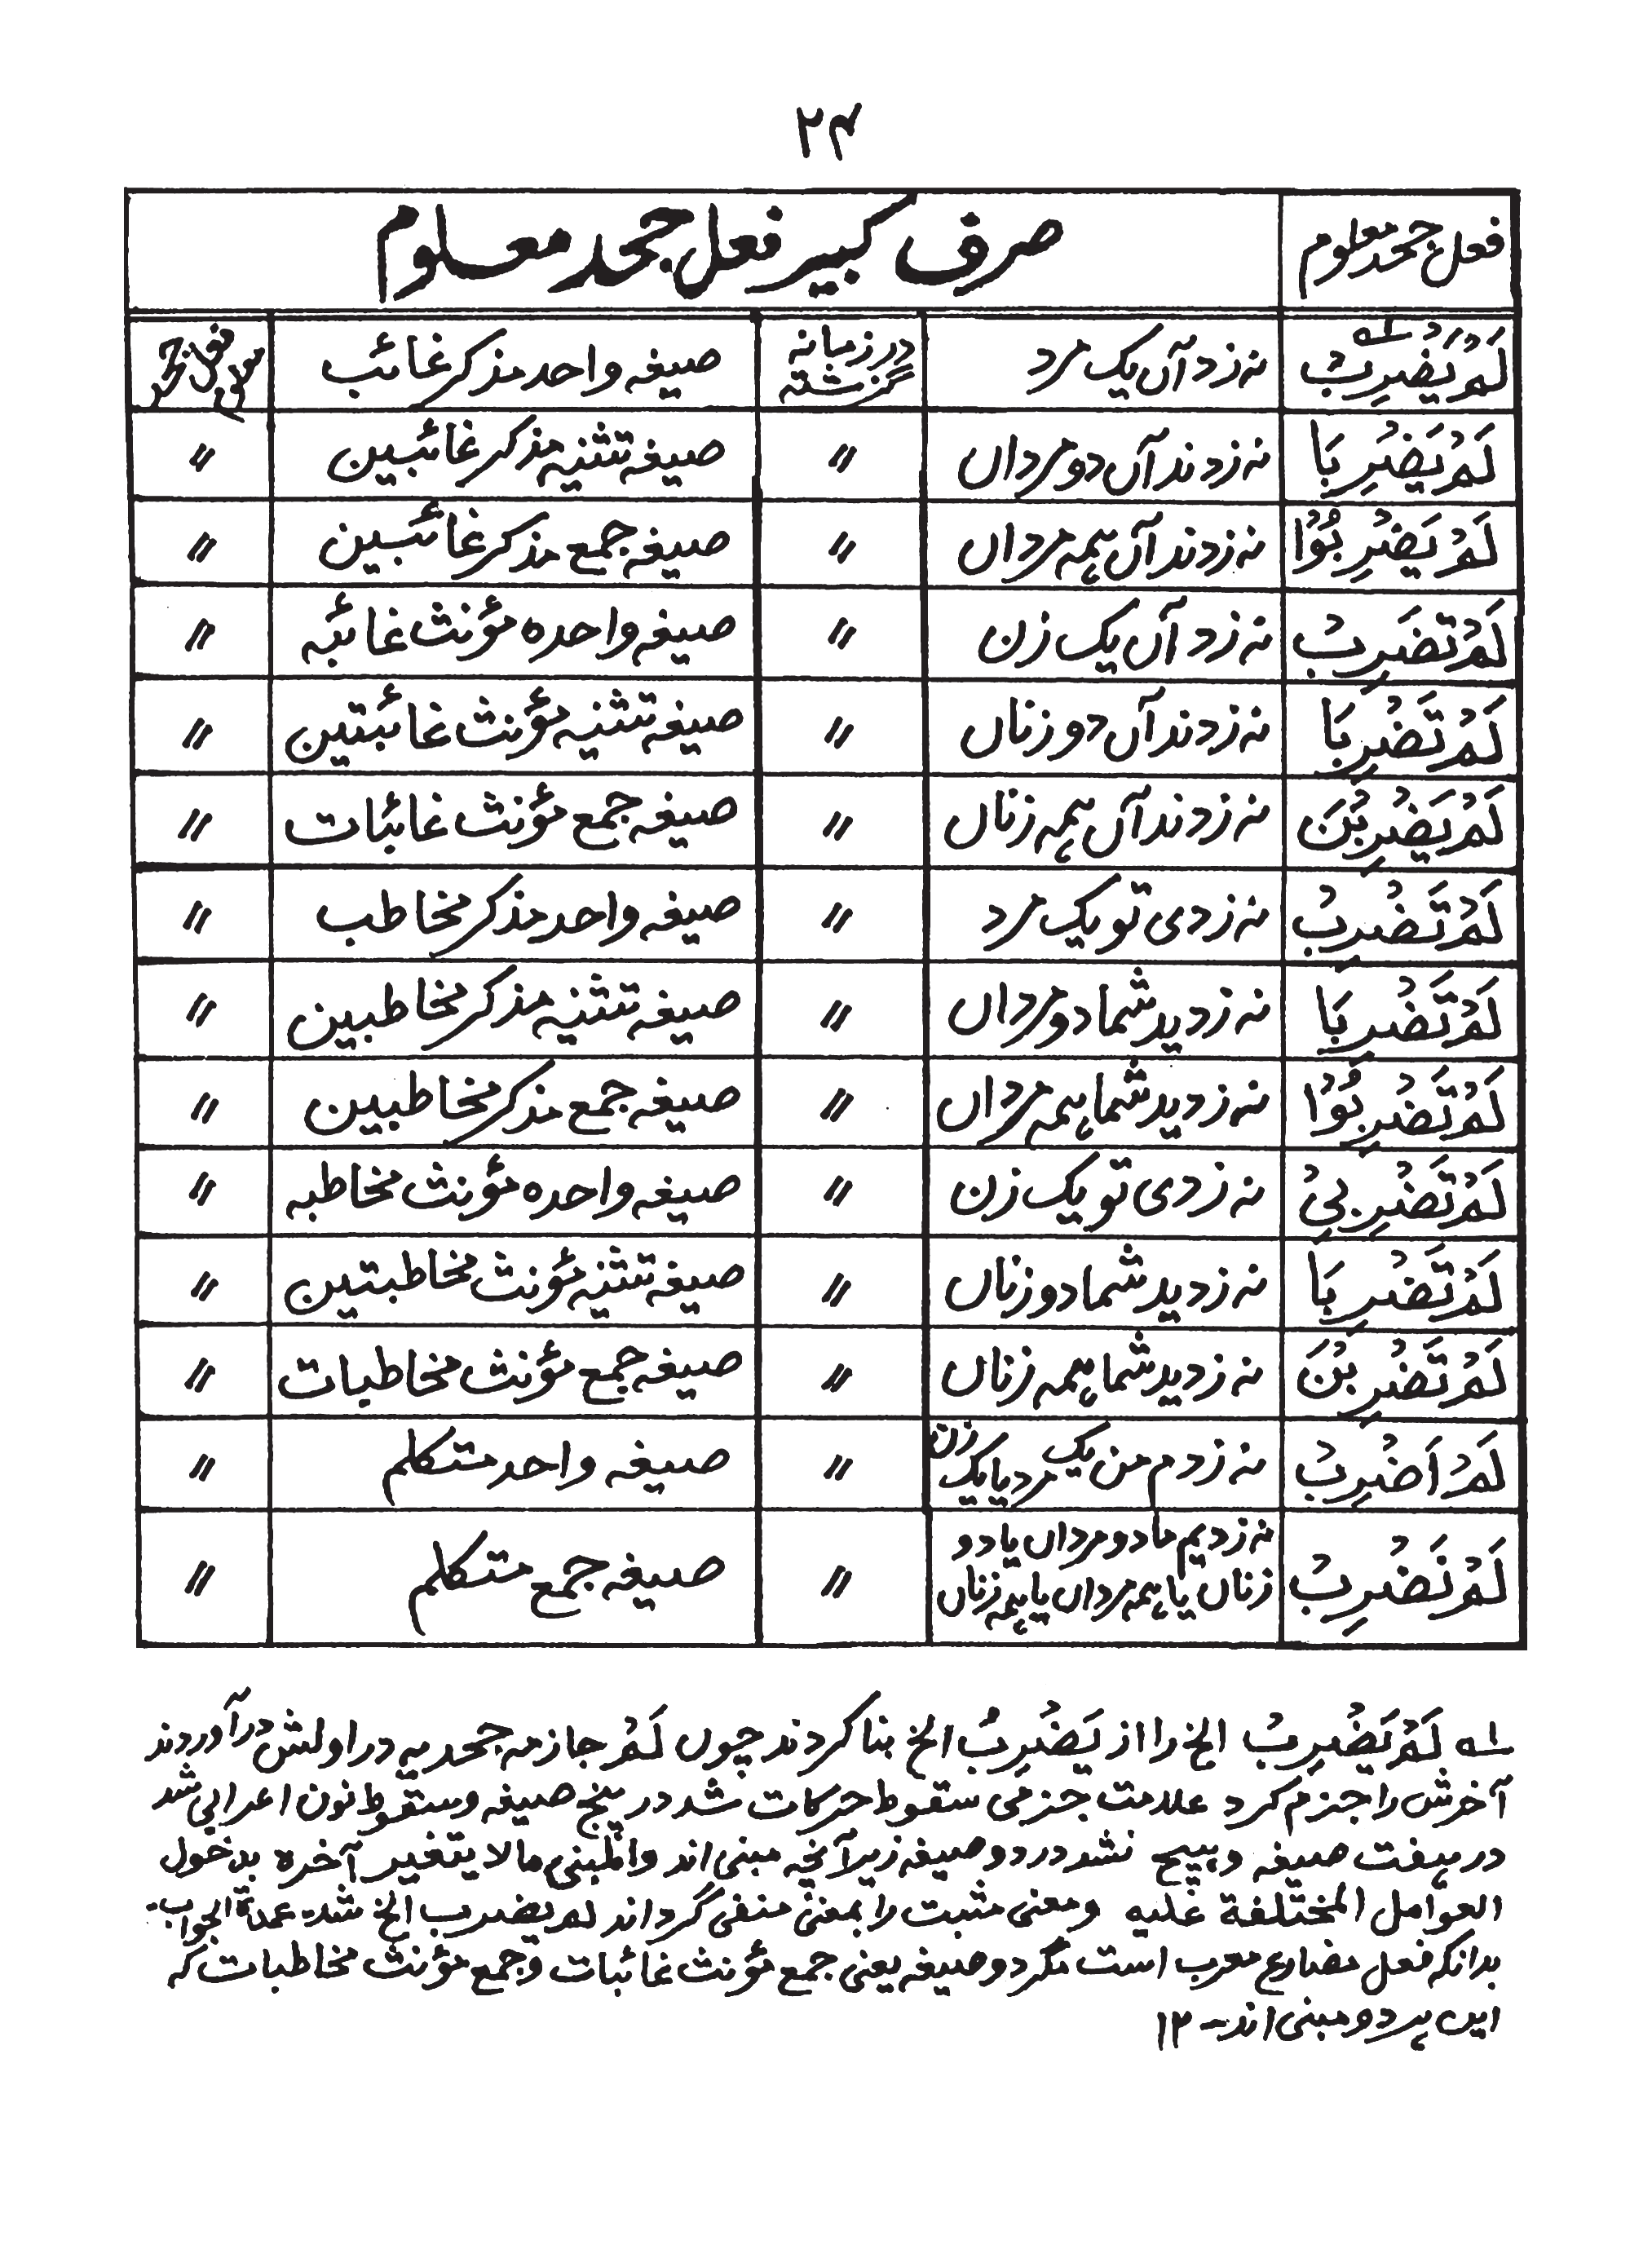 ۲۴
فعل جحد معلوم صرف کبیر فعل جحد معلوم
لَمْ يَضْرِبْ ؎۱ نہ زد آں یک مرد در زمانہ گزشتہ صیغہ واحد مذکر غائب فعل جحد
لَمْ يَضْرِبَا نہ زدند آں دو مرداں 〃 صیغہ تثنیہ مذکر غائبین 〃
لَمْ يَضْرِبُوْا نہ زدند آں ہمہ مرداں 〃 صیغہ جمع مذکر غائبین 〃
لَمْ تَضْرِبْ نہ زد آں یک زن 〃 صیغہ واحدہ مؤنث غائبہ 〃
لَمْ تَضْرِبَا نہ زدند آں دو زناں 〃 صیغہ تثنیہ مؤنث غائبتین 〃
لَمْ يَضْرِبْنَ نہ زدند آں ہمہ زناں 〃 صیغہ جمع مؤنث غائبات 〃
لَمْ تَضْرِبْ نہ زدی تو یک مرد 〃 صیغہ واحد مذکر مخاطب 〃
لَمْ تَضْرِبَا نہ زدید شما دو مرداں 〃 صیغہ تثنیہ مذکر مخاطبین 〃
لَمْ تَضْرِبُوْا نہ زدید شما ہمہ مرداں 〃 صیغہ جمع مذکر مخاطبین 〃
لَمْ تَضْرِبِيْ نہ زدی تو یک زن 〃 صیغہ واحدہ مؤنث مخاطبہ 〃
لَمْ تَضْرِبَا نہ زدید شما دو زناں 〃 صیغہ تثنیہ مؤنث مخاطبتین 〃
لَمْ تَضْرِبْنَ نہ زدید شما ہمہ زناں 〃 صیغہ جمع مؤنث مخاطبات 〃
لَمْ اَضْرِبْ نہ زدم من یک مرد یا یک زن 〃 صیغہ واحد متکلم 〃
لَمْ نَضْرِبْ نہ زدیم ما دو مرداں یا دو
زناں یا ہمہ مرداں یا ہمہ زناں 〃 صیغہ جمع متکلم 〃
؎۱ لَمْ يَضْرِبْ الخ را از يَضْرِبُ الخ بنا کردند چوں لَمْ جازمہ جحدیہ در اولش درآوردند
آخرش را جزم کرد علامت جزمی سقوط حرکات شد در پنج صیغہ و سقوط نون اعرابی شد
در ہفت صیغہ و ہیچ نشد در دو صیغہ زیرآنچہ مبنی اند والمبنی ما لا یتغیر آخرہ بدخول
العوامل المختلفة علیہ ومعنی مثبت را بمعنیٔ منفی گرداند لم یضرب الخ شد۔ عمدۃ الجواب۔
بدانکہ فعل مضارع معرب است مگر دو صیغہ یعنی جمع مؤنث غائبات و جمع مؤنث مخاطبات کہ
ایں ہر دو مبنی اند۔ ۱۲